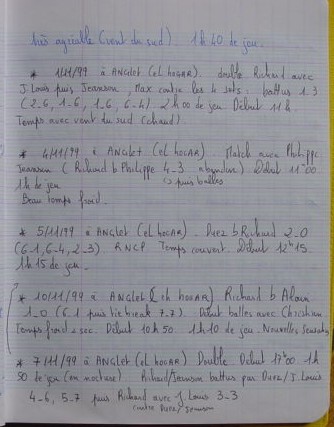 très agréable (vent du sud). 1h 40 de jeu.
* 1/11/99 à ANGLET (el HOGAR). double Richard avec
J. Louis puis Jeanson, Max contre les 4 sets. battus 1-3
(2-6, 1-6, 1-6, 6-4) 2h00 de jeu. Début 11h.
Temps avec vent du sud (chaud).
* 4/11/99 à ANGLET (el HOGAR). Match avec Philippe
Jeanson (Richard b Philippe 4-3 abandon). Début 11h00
1h de jeu → puis balles
Beau temps froid.
* 5/11/99 à ANGLET (el HOGAR). Duez b Richard 2-0
(6-1, 6-4, 2-3) RNCP Temps couvert. Début 12h15.
1h15 de jeu.
* 10/11/99 à ANGLET (el HOGAR) Richard b Alain
1-0 (6-1 puis tie break 7-7). Début balles avec Christian
Temps froid & sec. Début 10h50. 1h10 de jeu. Nouvelles
* 7/11/99 à ANGLET (el HOGAR) Double. Début 17h00 1h
50 de jeu (en nocturne). Richard/Jeanson battus par Duez/J. Louis
4-6, 5-7 puis Richard avec J. Louis 3-3
contre Duez/Jeanson